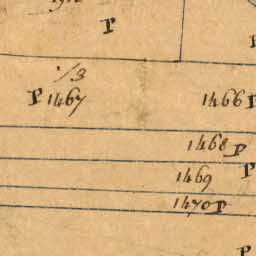 P
13
P 1467
1466 P
1468 P
1469
P
1470 P
P